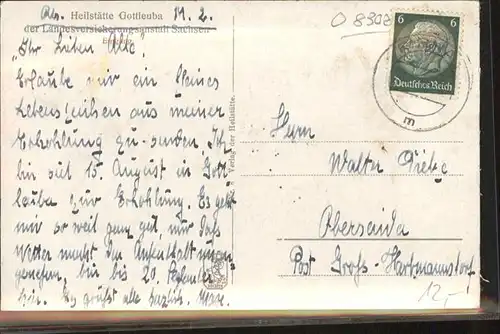 Heilstätte Gottleuba
der Landesversicherungsanstalt Sachsen
"Ihr Lieben Alle!
Erlaube mir ein kleines
Lebenszeichen aus meiner
Erholung zu senden
bin seit 15. August in Gott
leuba zur Erholung. Es geht
mir so weit ganz gut, nur das
Wetter macht den Aufenthalt
bin bis 20. September
hier. Es grüßt alle herzlich
Verlag der Heilstätte.
6 6
Deutsches Reich
m
Herrn
Walter
Oberseida
Post Groß-Hartmannsdorf
12,-